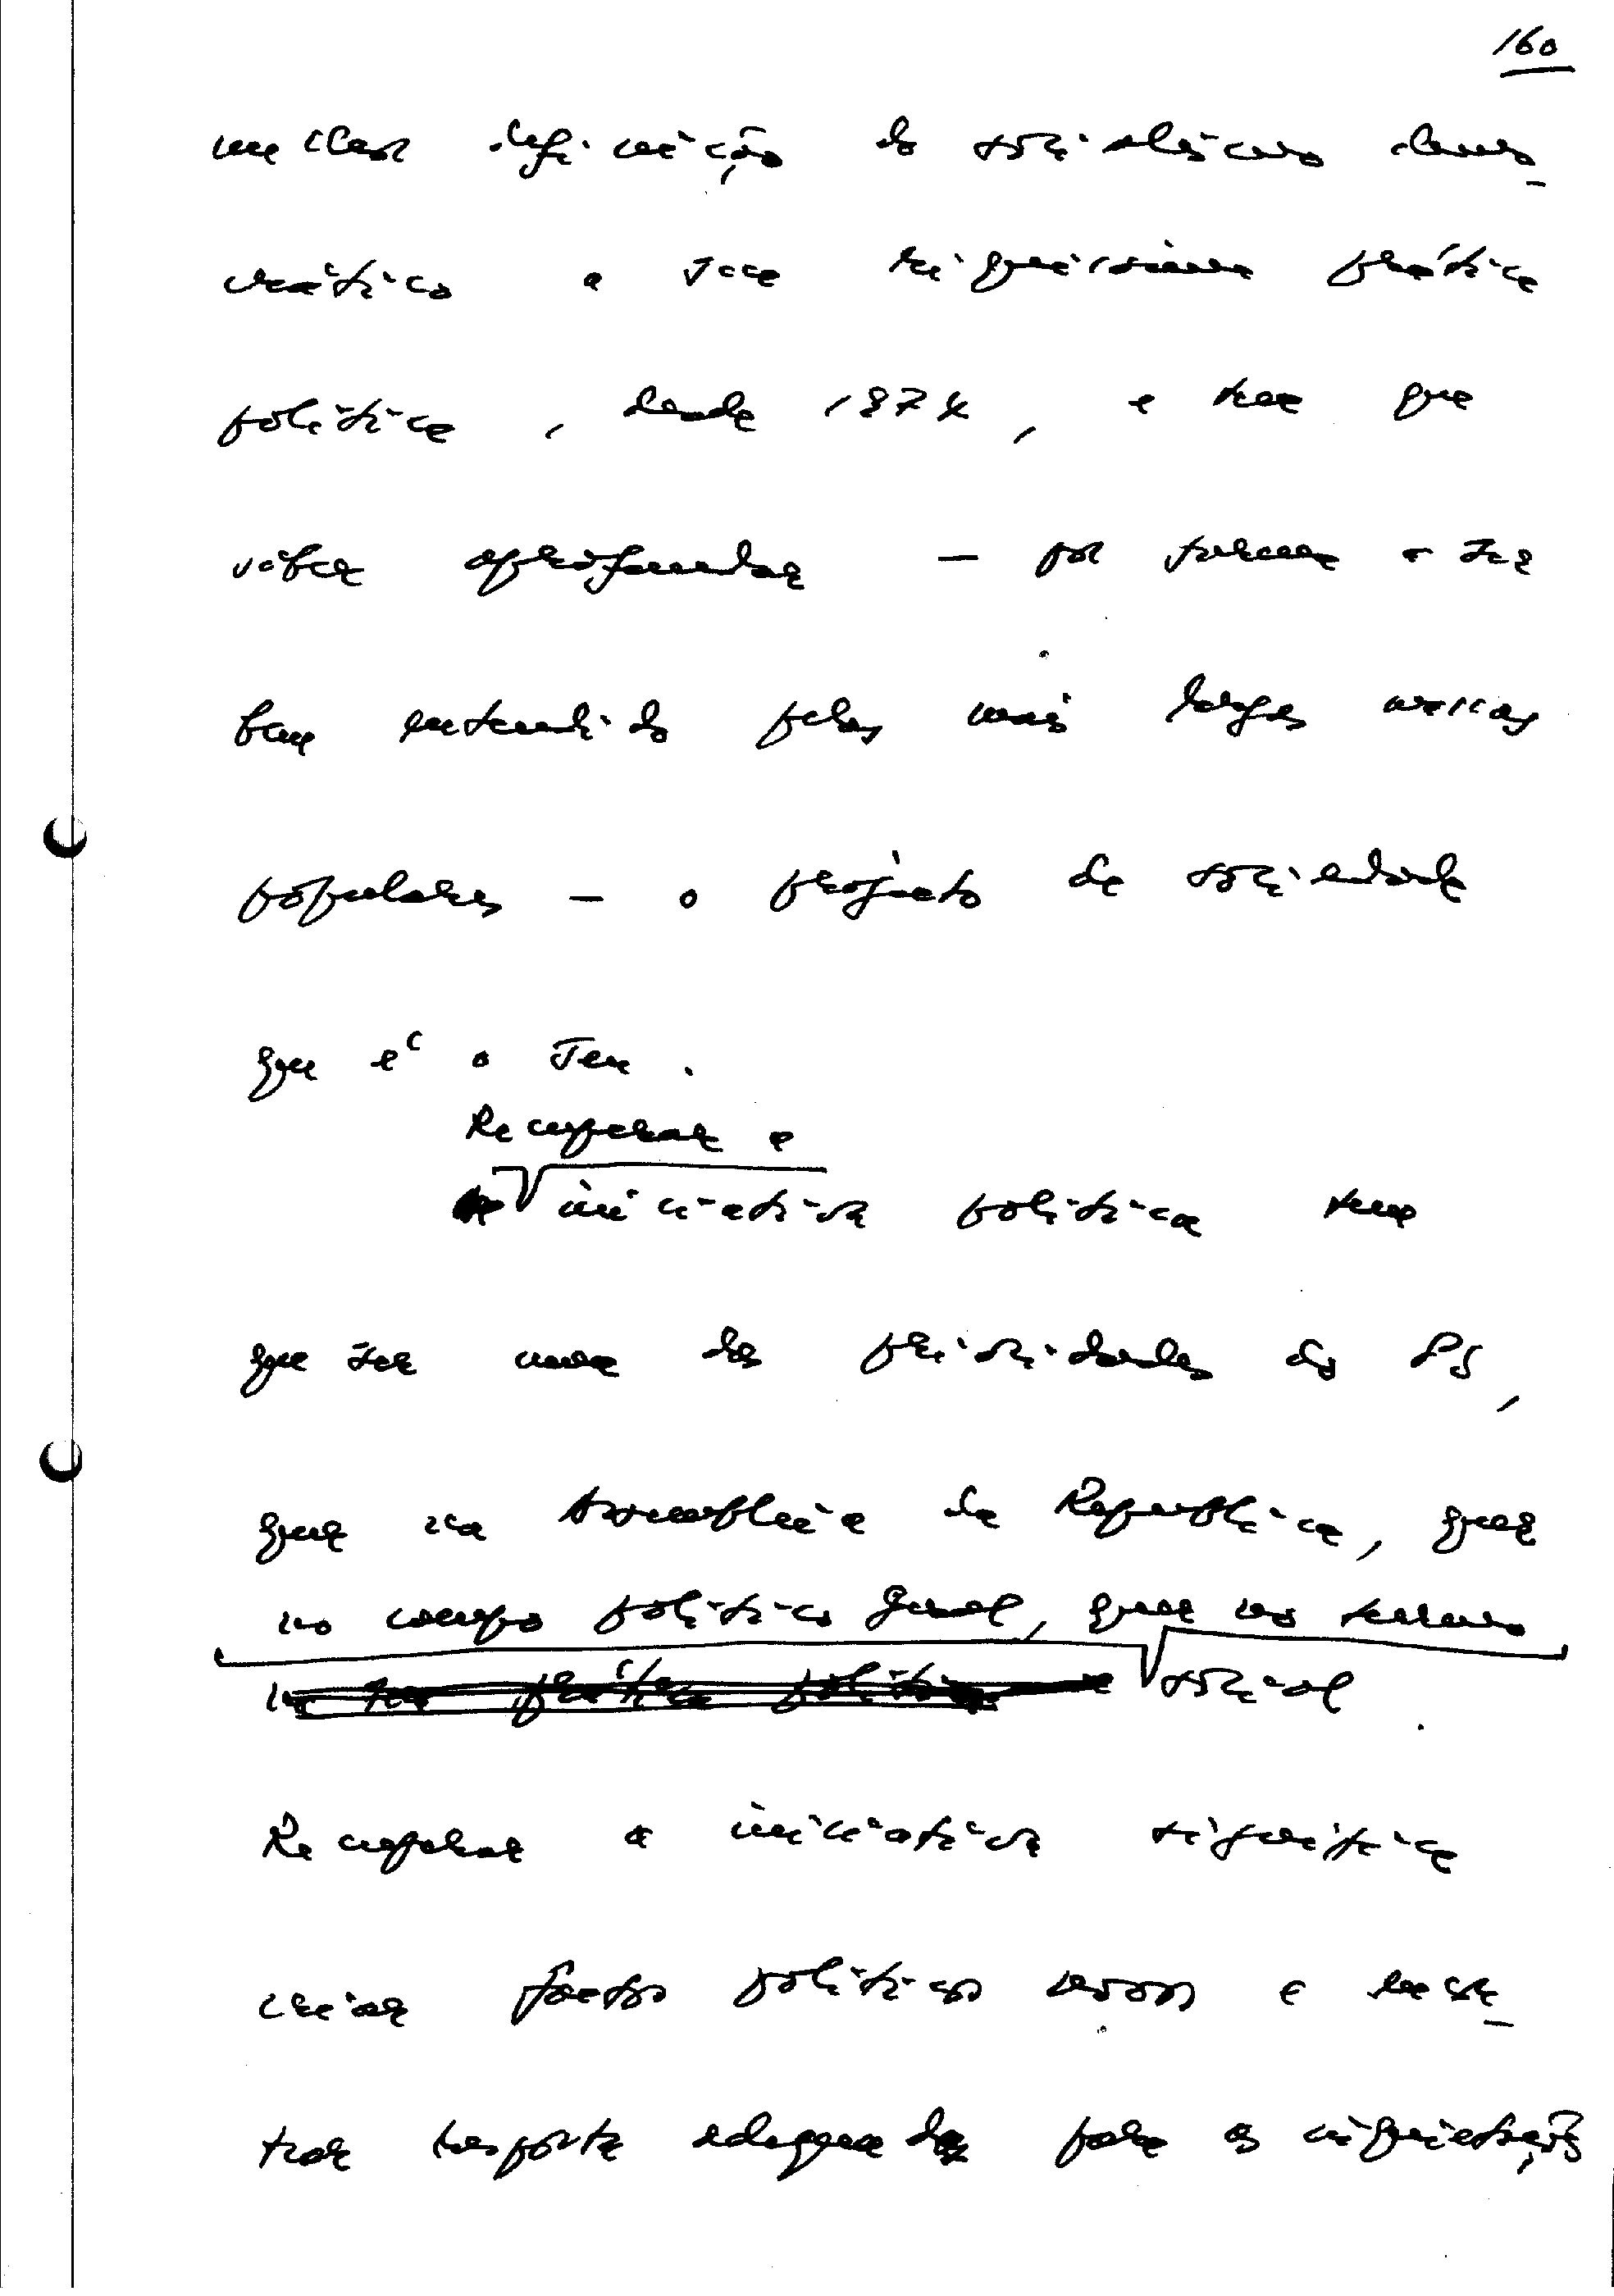 160
melhor definição do socialismo demo-
crático a sua riquíssima prática
política, desde 1974, e tem que
saber aprofundar — por forma a ser
bem entendido pelas mais largas massas
populares — o projecto de sociedade
que é o seu.
Recuperar a
iniciativa política tem
que ser uma das prioridades do PS,
quer na Assembleia da República, quer
no campo político geral, quer no terreno
social
Recuperar a iniciativa significa
criar factos políticos novos e encon-
trar resposta adequada para as inquietações